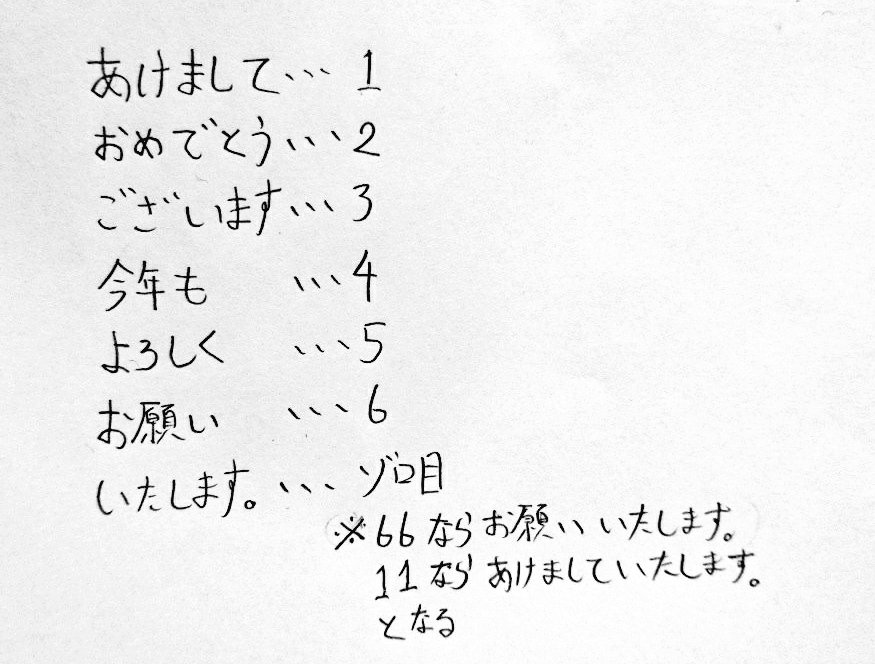 あけまして… 1
おめでとう… 2
ございます… 3
今年も …4
よろしく …5
お願い …6
いたします。… ゾロ目
※66ならお願いいたします。
11ならあけましていたします。
となる